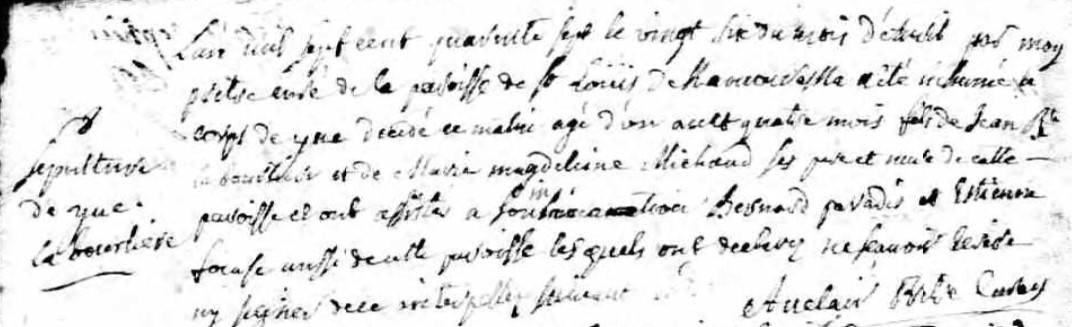 L'an mil sept cent quarante sept le vingt six du mois d'avril par moy
prêtre curé de la paroisse de St Louis de Kamouraska a été inhumé le
corps de yve décédé ce matin agé d'un an et quatre mois fils de Jean Bte
la bourliere et de Marie magdeleine Michaud ses pere et mere de cette
paroisse et ont assisté a son inhumation Bernard paradis et Estienne
aussi de cette paroisse lesquels ont declaré ne sçavoir ecrire
ny signer de ce interpellez suivant
Auclair Ptre Curé
sepulture
de yve
la bourliere